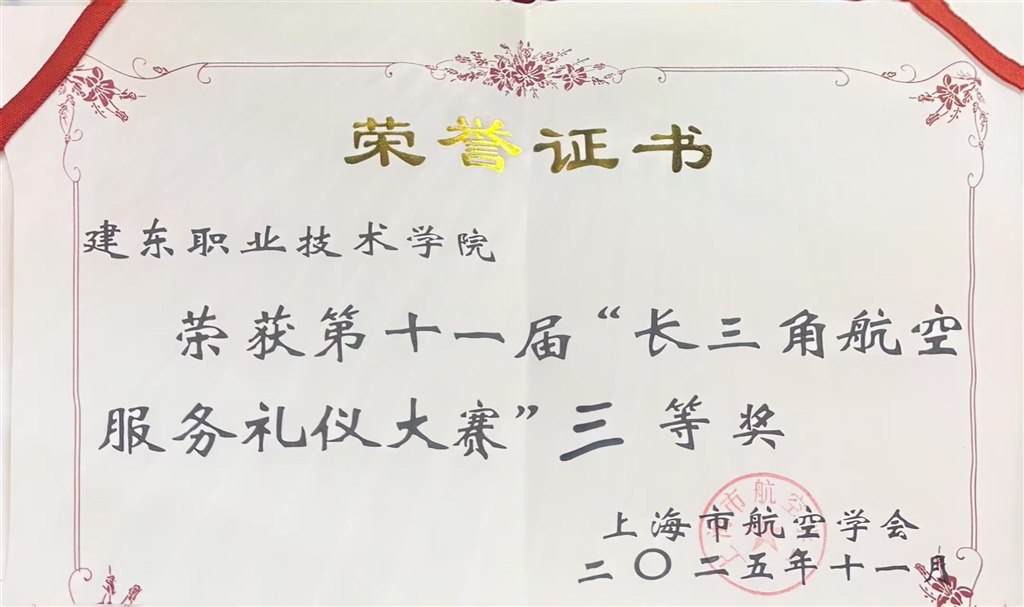 荣誉证书
建东职业技术学院
荣获第十一届“长三角航空
服务礼仪大赛”三等奖
上海市航空学会
二〇二五年十一月